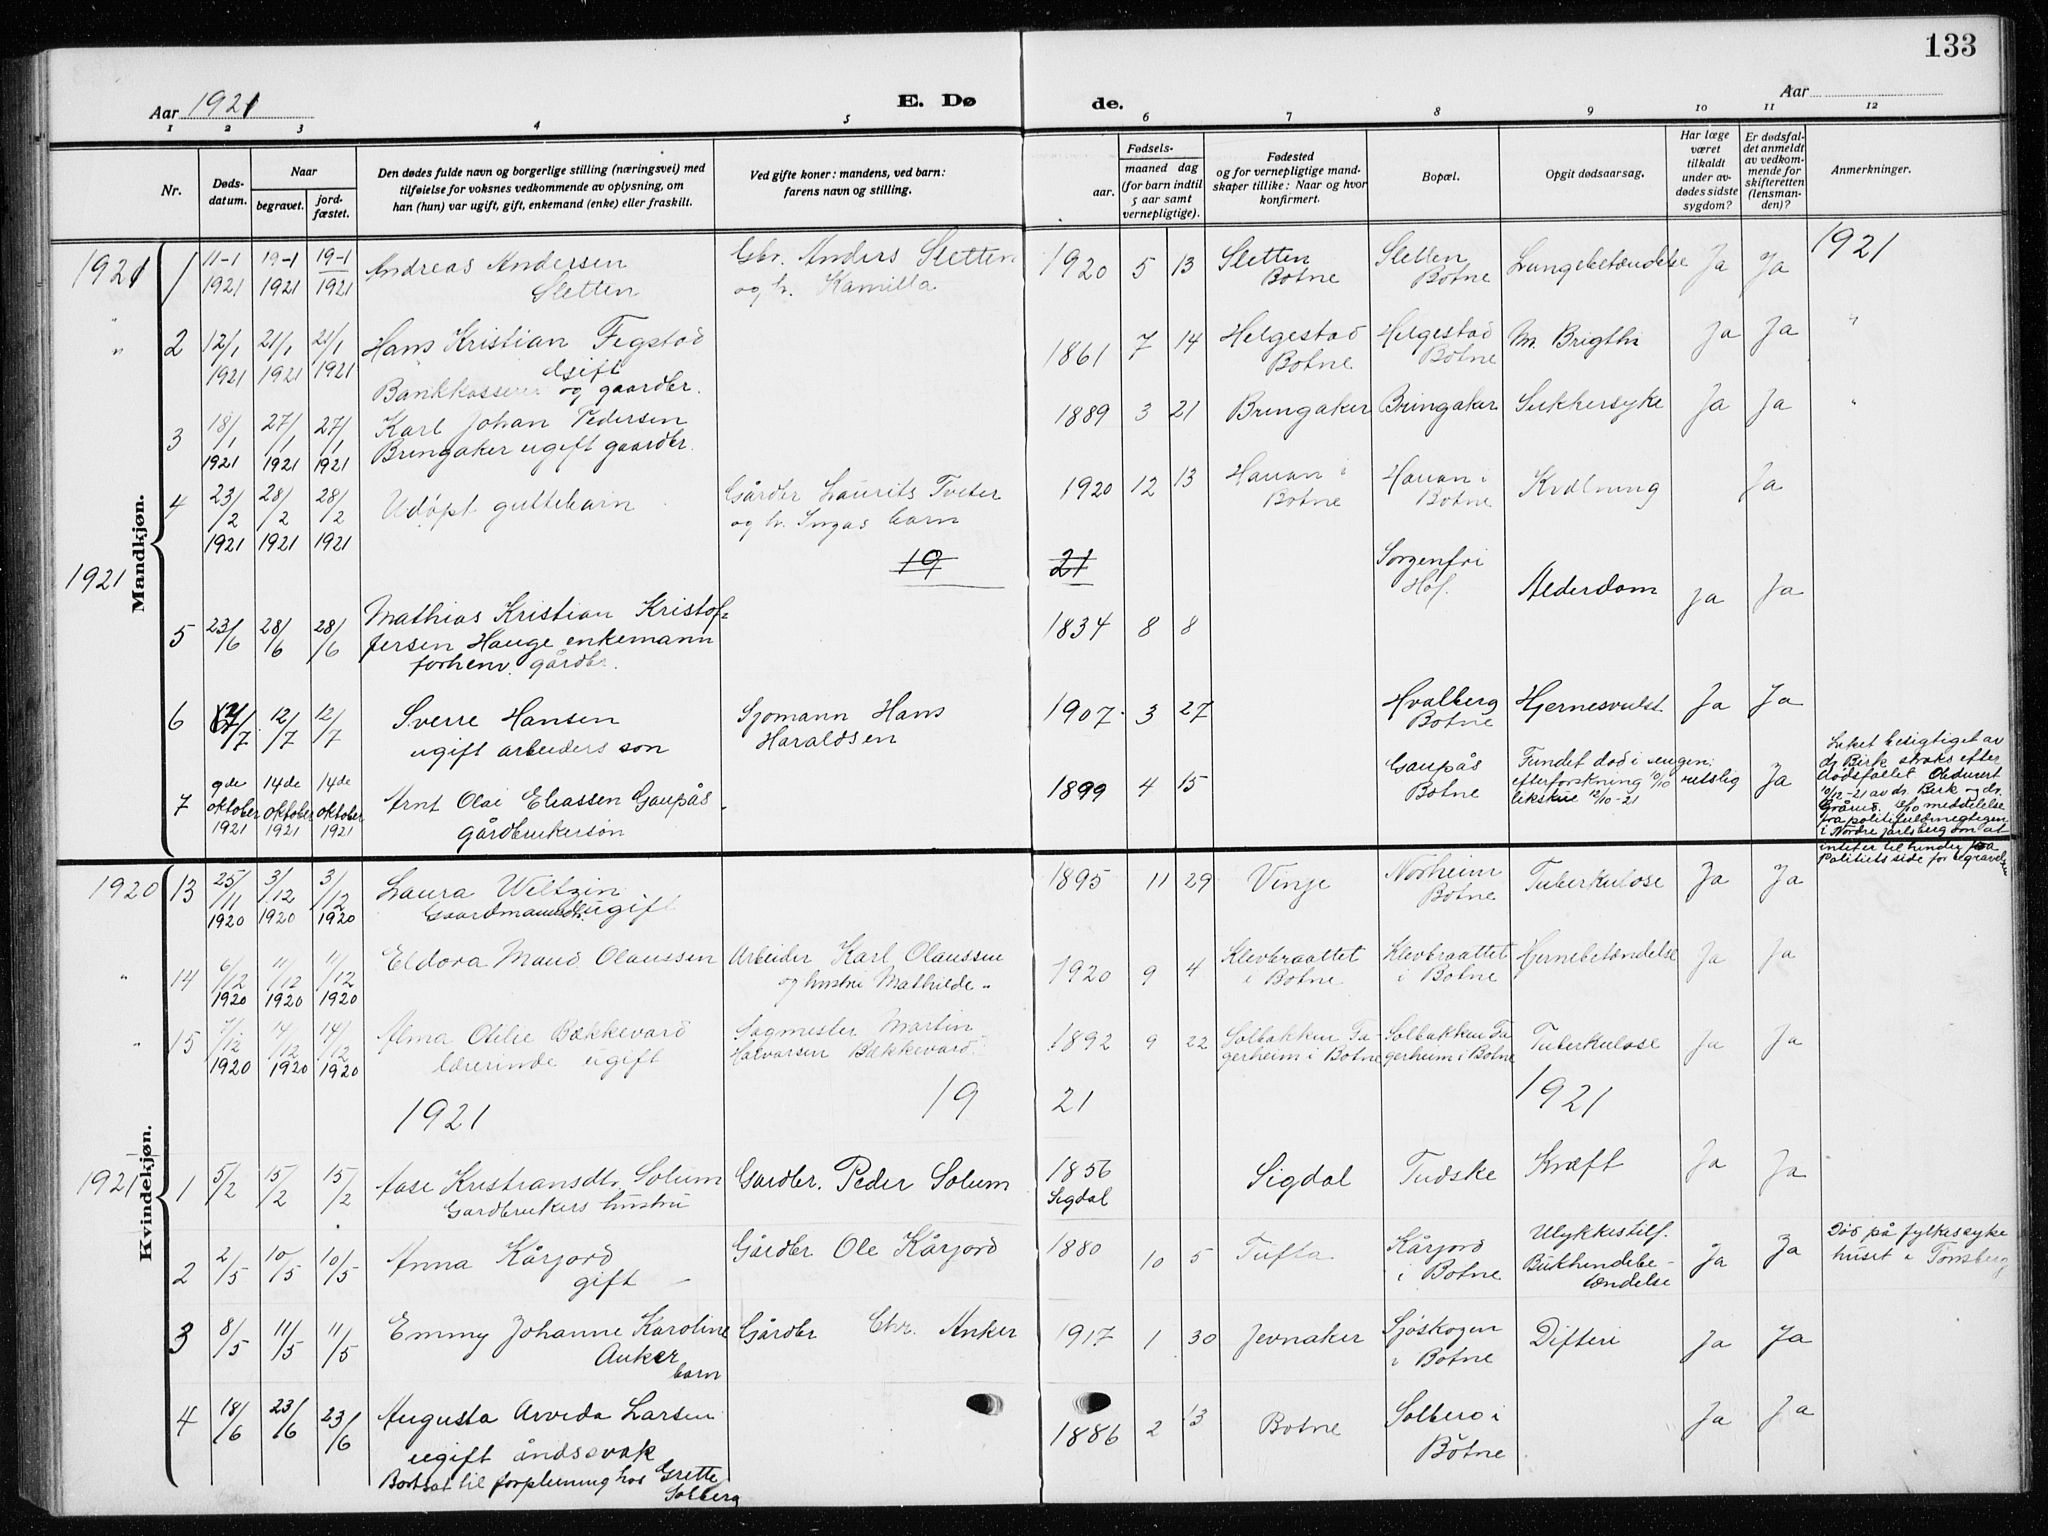 133
Aar 1921
E. Dø
de.
Aar
1 2 3 4 5 6 7 8 9 10 11 12
Nr.
Døds-
datum.
Naar
begravet.
jord-
fæstet.
Den dødes fulde navn og borgerlige stilling (næringsvei) med
tilføielse for voksnes vedkommende av oplysning, om
han (hun) var ugift, gift, enkemand (enke) eller fraskilt.
Ved gifte koner: mandens, ved barn:
farens navn og stilling.
Fødsels-
aar.
maaned dag
(for barn indtil
5 aar samt
vernepligtige).
Fødested
og for vernepligtige mand-
skaper tillike: Naar og hvor
konfirmert.
Bopæl.
Opgit dødsaarsag.
Har læge
været
tilkaldt
under av-
dødes sidste
sygdom?
Er dødsfal-
det anmeldt
av vedkom-
mende for
skifteretten
(lensman-
den)?
Anmerkninger.
Mandkjøn.
1921 1 11-1 1921 19-1 1921 19-1 1921
Andreas Andersen
Sletten
Gbr. Anders Sletten
og h. Kamilla
1920 5 13 Sletten Botne Sletten Botne Lungebetændelse Ja Ja 1921
" 2 12/1 1921 21/1 1921 21/1 1921
Hans Kristian Fegstad
Gift
Bankkasserer og gaardbr.
1861 7 14 Helgestad Botne Helgestad Botne M. Brigthi Ja Ja "
3 18/1 1921 27/1 1921 27/1 1921
Karl Johan Pedersen
Bringaker ugift gaardbr.
1889 3 21 Bringaker Bringaker Sukkersyke Ja Ja "
4 23/2 1921 28/2 1921 28/2 1921
Udøpt guttebarn
Gårdbr Laurits Tveter
og h. Ingas barn
1920 12 13 Hauan i Botne Hauan i Botne Kvælning Ja
19 21
1921
5 23/6 28/6 28/6
Mathias Kristian Kristof-
fersen Hauge enkemann
forhenv. gårdbr.
1834 8 8 Sorgenfri Hof. Alderdom Ja Ja
6 12/7 12/7
Sverre Hansen
ugift arbeiders søn
Sjømann Hans
Haraldsen
1907 3 27 Hvalberg Botne Hjernesvulst Ja Ja
7 9de oktober 1921 14de oktober 1921 14de oktober 1921
Arnt Olai Eliassen Gaupås
gårdbrukersøn
1899 4 15 Gaupås Botne
Fundet død i sengen;
efterforskning 10/10 retslig
likskue 12/10-21
Ja
Liket besigtiget av
dr Birk straks efter
dødsfallet Obducert
10/12-21 av dr. Birk og dr.
Grårud. meddelelse
fra politifuldmegtigen
i Nordre Jarlsberg om at
intet er til hinder fra
Politiets side for begravelsen
Kvindekjøn.
1920 13 25/11 1920 3/12 1920 3/12 1920
Laura Weltzin
Gaardmandsdtr ugift
1895 11 29 Vinje Norheim Botne Tuberkulose Ja Ja
" 14 6/12 1920 11/12 1920 11/12 1920
Eldora Maud Olaussen
Arbeider Karl Olaussen
og hustru Mathilde "
1920 9 4 Klevbraattet i Botne Klevbraattet i Botne Hjernebetændelse Ja Ja
" 15 7/12 1920 14/12 1920 14/12 1920
Alma Otilie Bækkevard
lærerinde ugift
Sagmester Martin
Halvorsen Bækkevard
1892 9 22 Solbakken Fa-
gerheim i Botne Solbakken Fa-
gerheim i Botne Tuberkulose Ja Ja
1921 19 21 1921
1921 1 5/2 15/2 15/2
Aase Kristiansdtr. Solum
Gardbrukers hustru
Gardbr. Peder Solum
1856
Sigdal
Sigdal Tudske Kræft Ja Ja
2 2/5 10/5 10/5
Anna Kårjord
gift
Gårdbr Ole Kårjord
1880 10 5 Tufta Kårjord i Botne
Ulykkestilf.
Bukhindebe-
tændelse
Ja Ja
Død på fylkessyke
huset i Tønsberg
3 8/5 11/5 11/5
Emmy Johanne Karoline
Anker
barn
Gårdbr Chr. Anker
1917 1 30 Jevnaker Sjøskogen i Botne Difteri Ja Ja
4 18/6 23/6 23/6
Augusta Arvida Larsen
ugift åndssvak
Bortsat til forpleining hos Grette
Solberg
1886 2 13 Botne Solberg i Botne Ja Ja